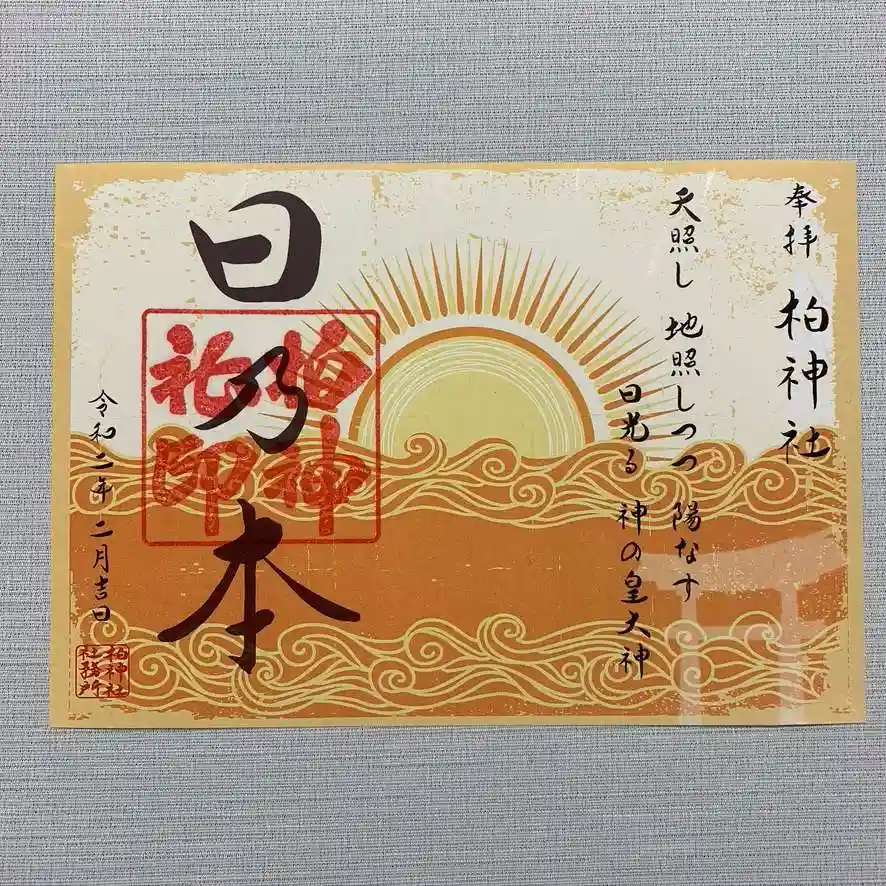 奉拝 柏神社
天照し 地照しつつ 陽なす
日光る 神の皇大神
日乃本
柏神
社印
令和二年 二月吉日
柏神社
社務所